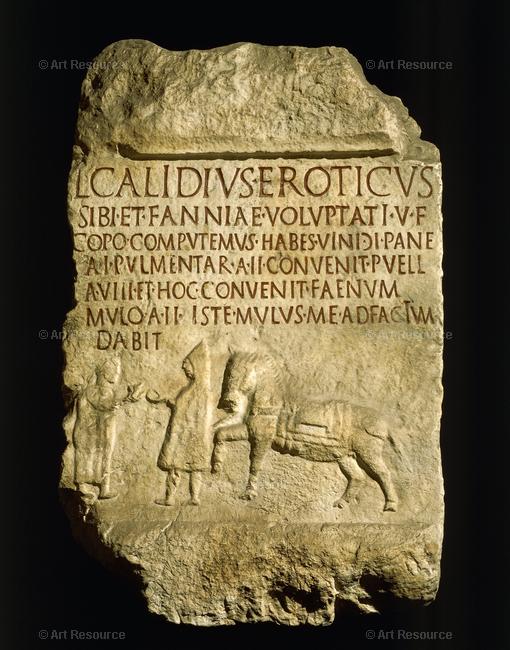 © Art Resource
© Art Resource
L·CALIDIVS EROTICVS
SIBI·ET·FANNIAE·VOLVPTATI·V·F
COPO·COMPVTEMVS·HABES·VINI𐆖I·PANE
A·I·PVLMENTAR·A·II·CONVENIT·PVELL
A·VIII·ET·HOC·CONVENIT·FAENVM
MVLO·A·II·ISTE·MVLVS·ME·AD·FACTVM
DABIT
© Art Resource
© Art Resource
© Art Resource
© Art Resource